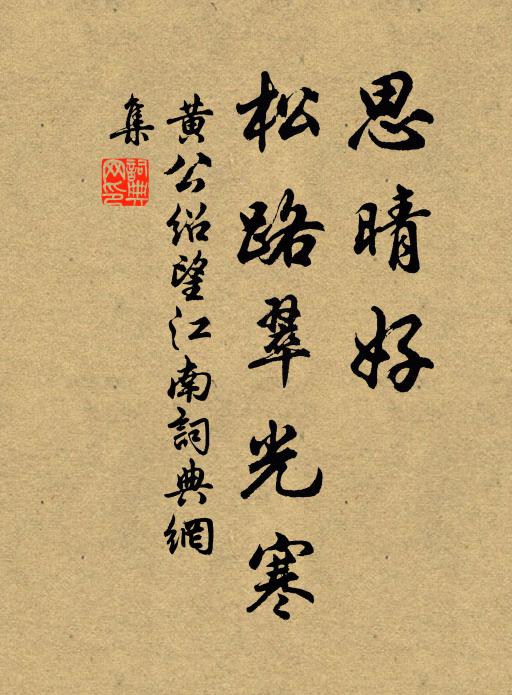 思晴好
松路翠光寒
黄公绍望江南詞典網
集
詞典
网印